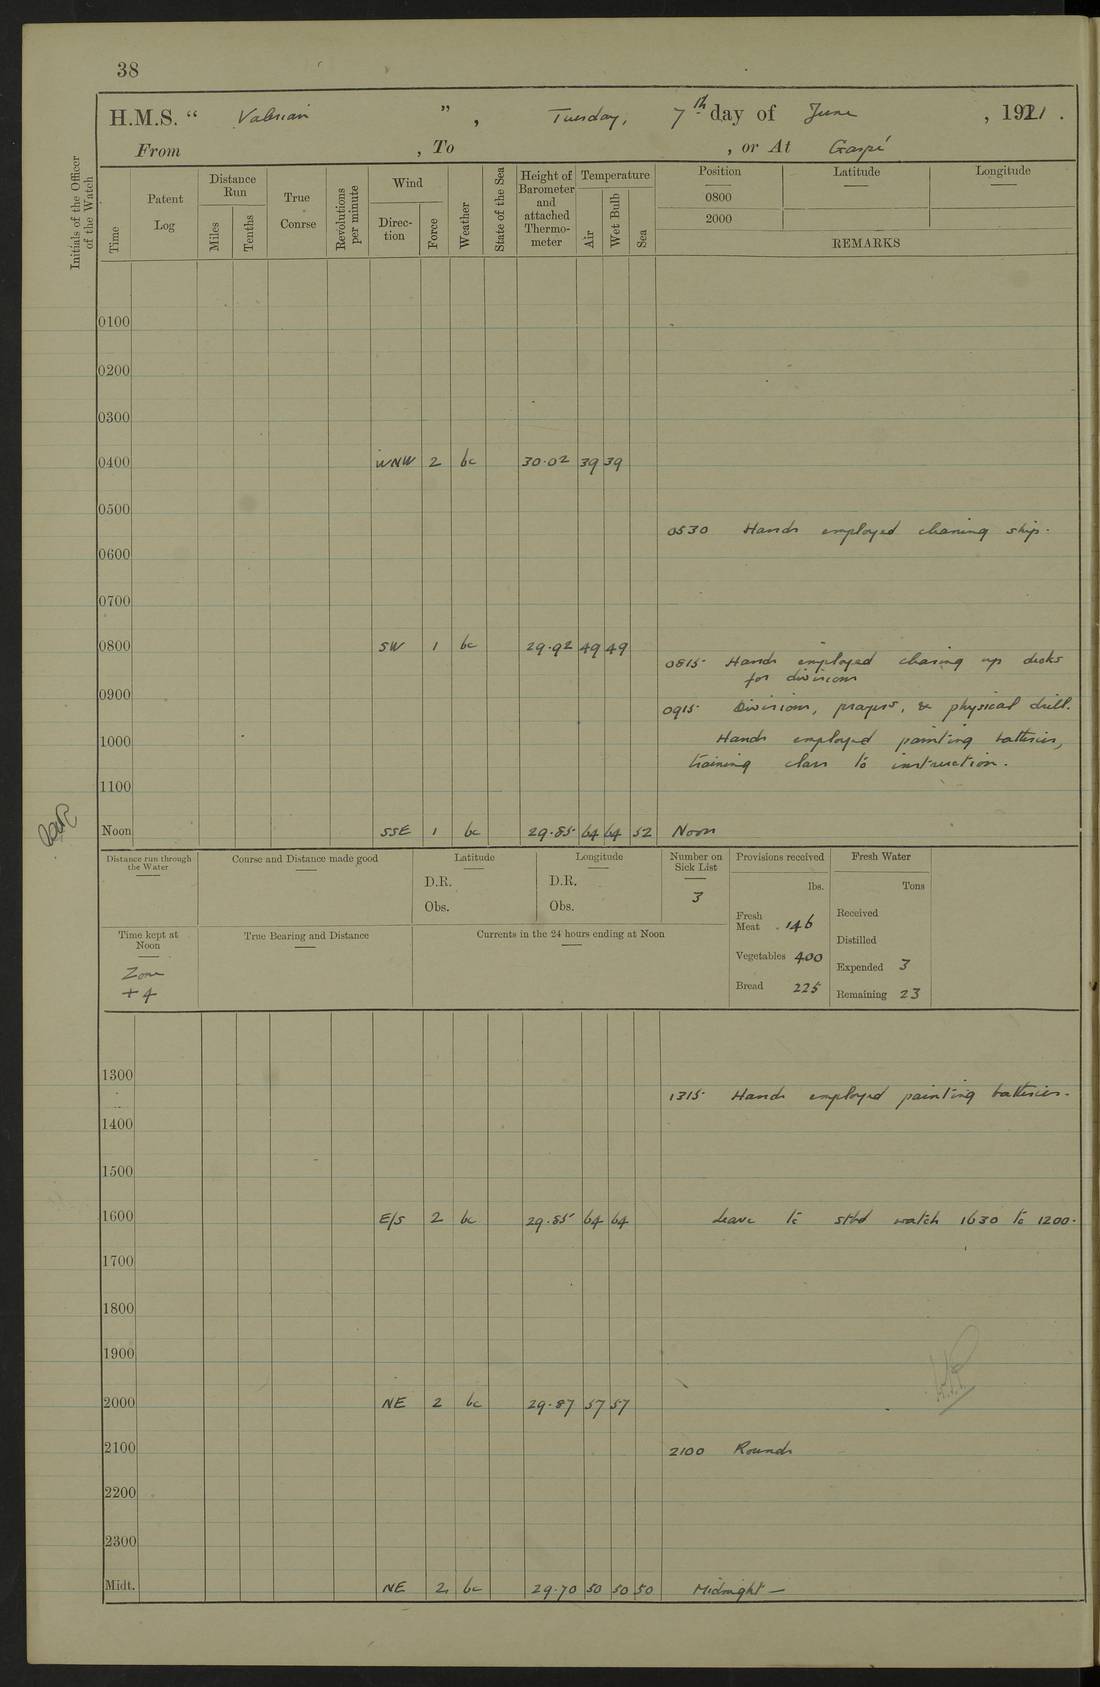 38
H.M.S. “ Valerian ”, Tuesday, 7th day of June, 1921.
From , To , or At Gaspé
Initials of the Officer of the Watch
Time
Patent Log
Distance Run
Miles
Tenths
True Conrse
Revolutions per minute
Wind
Direc-tion
Force
Weather
State of the Sea
Height of Barometer and attached Thermo-meter
Temperature
Air
Wet Bulb
Sea
Position
Latitude
Longitude
0800
2000
REMARKS
0100
0200
0300
0400 WNW 2 bc 30·02 39 39
0500
0530 Hands employed cleaning ship.
0600
0700
0800 SW 1 bc 29·92 49 49
0815 Hands employed clearing up decks
for divisions
0900
0915 Divisions, prayers, & physical drill.
1000 Hands employed painting batteries,
training class to instruction.
1100
Noon SSE 1 bc 29·85 64 64 52 Noon
Distance run through the Water
Course and Distance made good
Latitude
D.R.
Obs.
Longitude
D.R.
Obs.
Number on Sick List
3
Provisions received
lbs.
Fresh Meat 146
Vegetables 400
Bread 225
Fresh Water
Tons
Received
Distilled
Expended 3
Remaining 23
Time kept at Noon
Zone
+ 4
True Bearing and Distance
Currents in the 24 hours ending at Noon
1300
1315 Hands employed painting batteries.
1400
1500
1600 E/S 2 bc 29·85 64 64 Leave to stbd watch 1630 to 1200.
1700
1800
1900
2000 NE 2 bc 29·87 57 57
2100 2100 Rounds
2200
2300
Midt. NE 2 bc 29·70 50 50 50 Midnight —